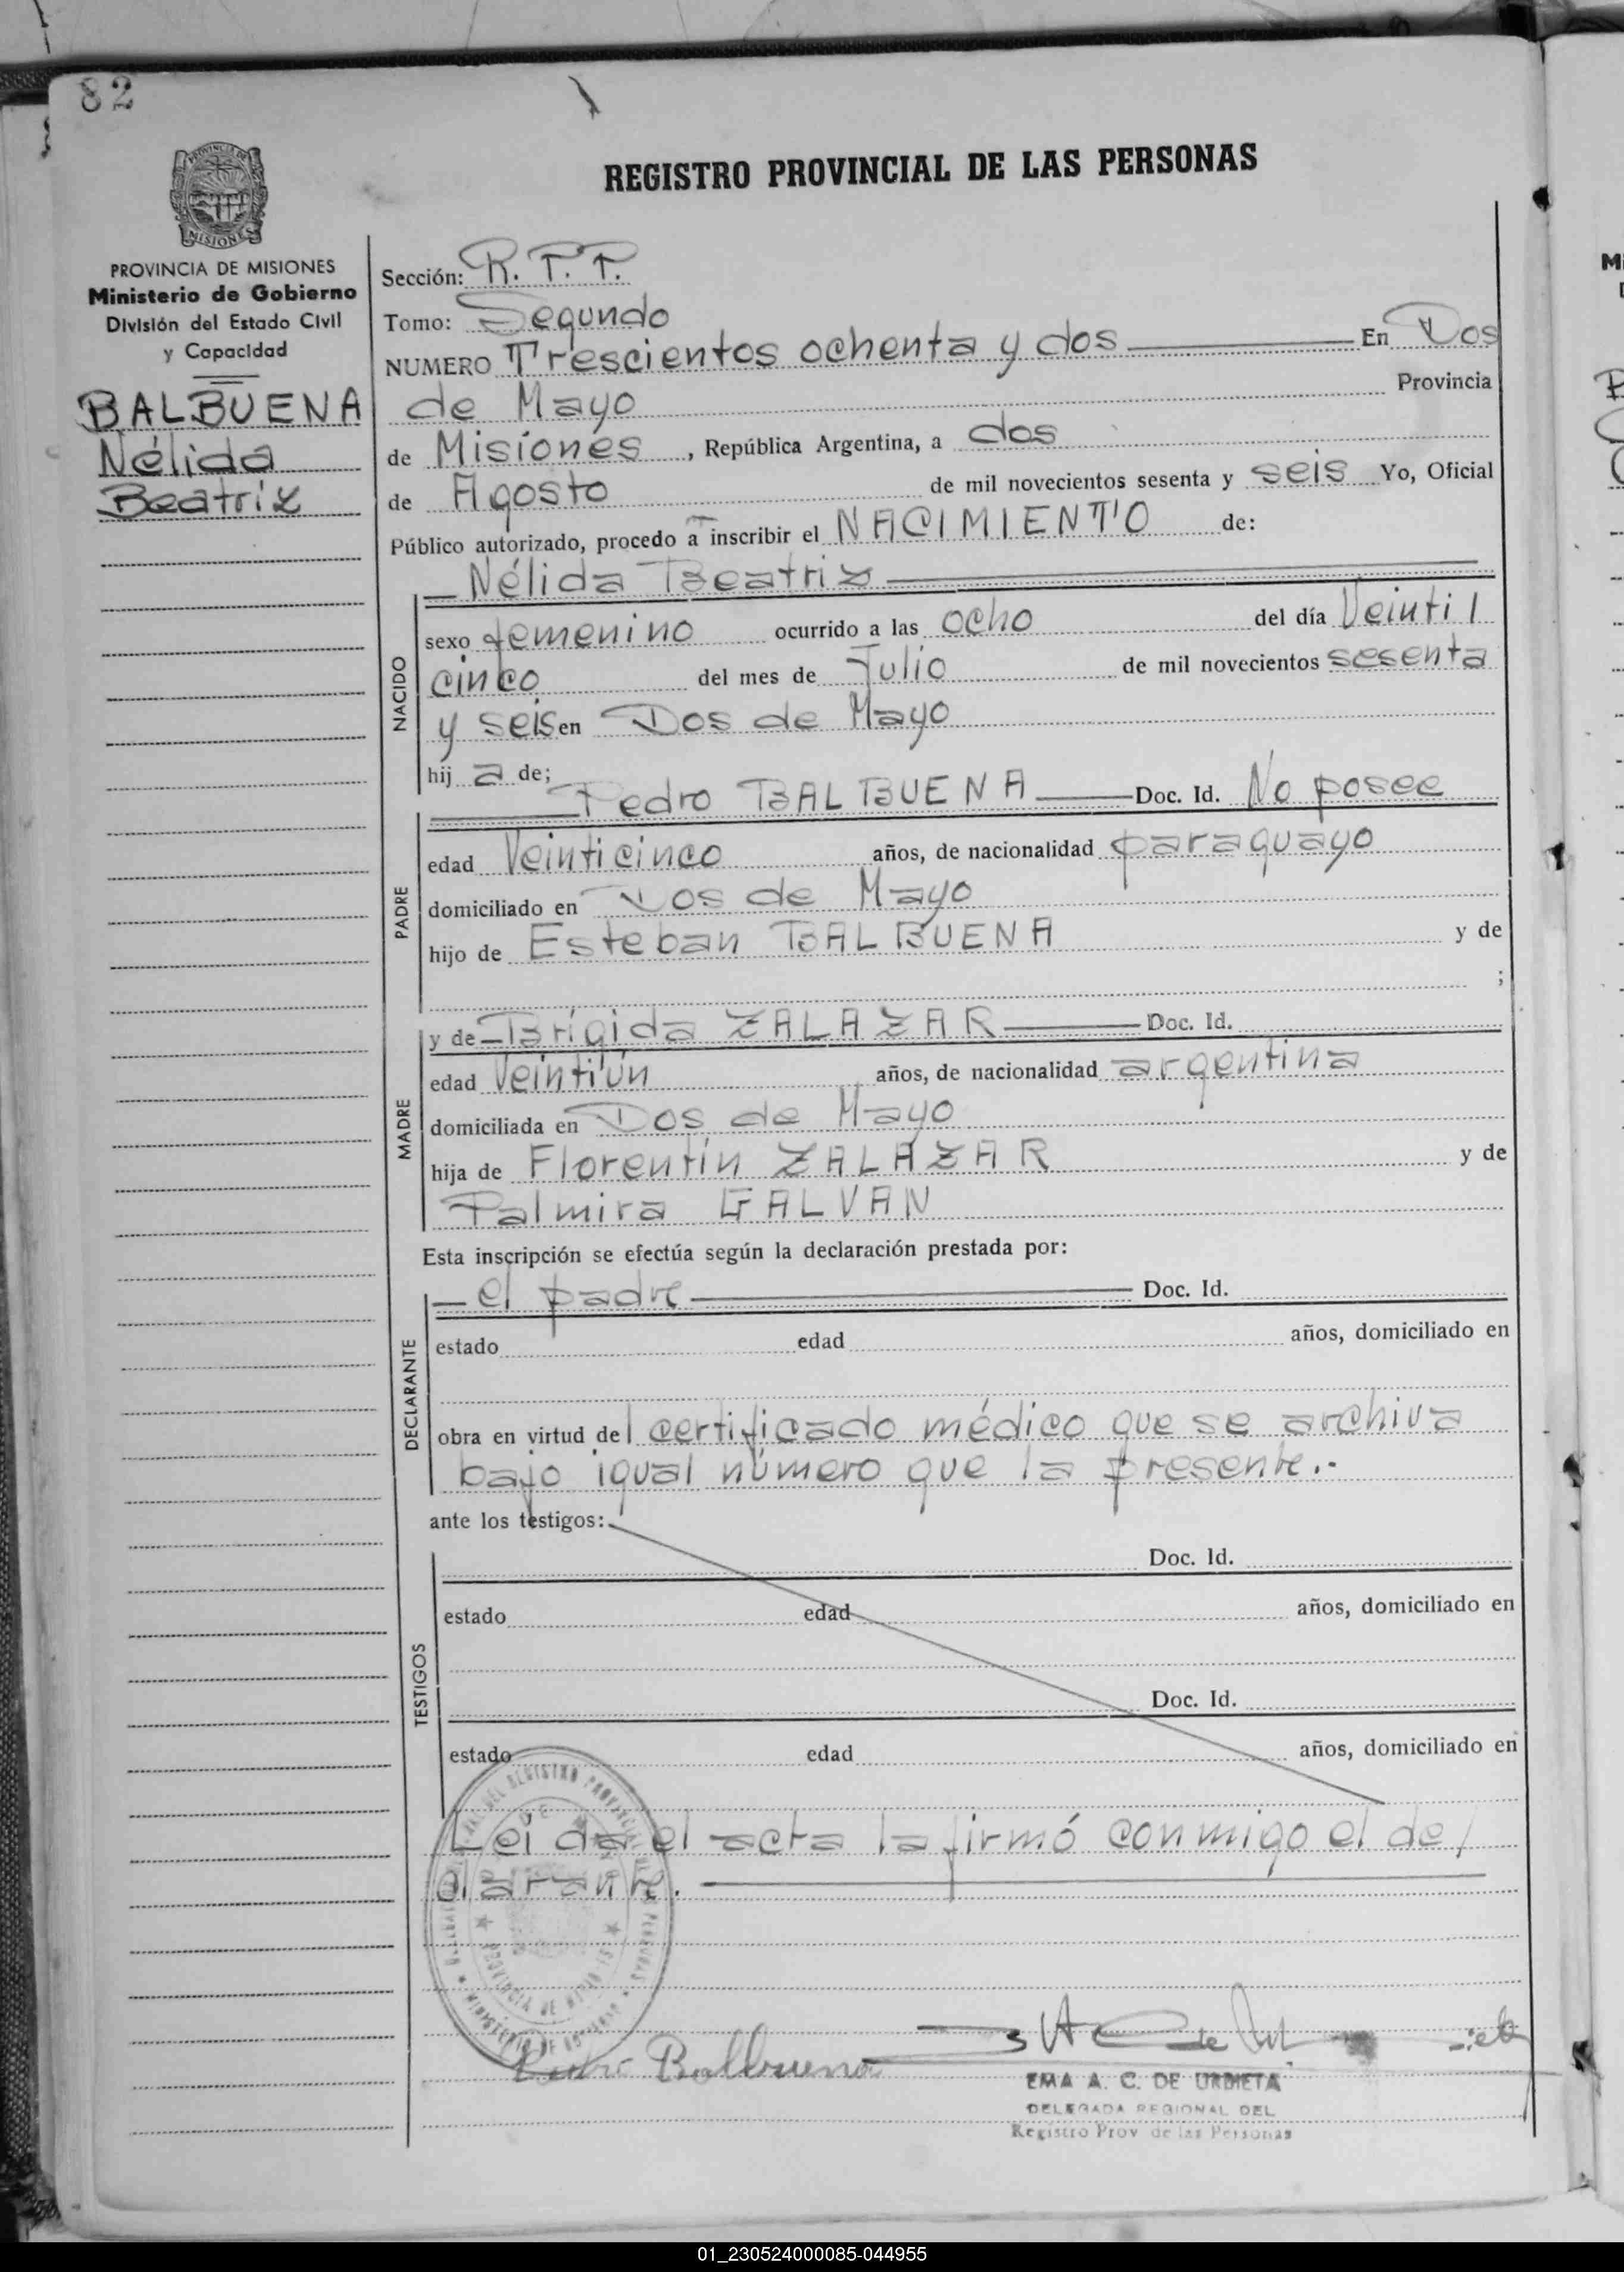 82
REGISTRO PROVINCIAL DE LAS PERSONAS
PROVINCIA DE MISIONES
Ministerio de Gobierno
División del Estado Civil
y Capacidad
BALBUENA
Nélida
Beatriz
Sección: R. P. P.
Tomo: Segundo
NUMERO Trescientos ochenta y dos En Dos
de Mayo Provincia
de Misiones, República Argentina, a dos
de Agosto de mil novecientos sesenta y seis Yo, Oficial
Público autorizado, procedo a inscribir el NACIMIENTO de:
Nélida Beatriz
NACIDO
sexo femenino ocurrido a las ocho del día Veinti/
cinco del mes de Julio de mil novecientos sesenta
y seis en Dos de Mayo
hij a de;
Pedro BALBUENA Doc. Id. No posee
PADRE
edad Veinticinco años, de nacionalidad paraguayo
domiciliado en Dos de Mayo
hijo de Esteban BALBUENA y de
;
y de Brígida ZALAZAR Doc. Id.
MADRE
edad Veintiún años, de nacionalidad argentina
domiciliada en Dos de Mayo
hija de Florentín ZALAZAR y de
Palmira GALVAN
Esta inscripción se efectúa según la declaración prestada por:
el padre Doc. Id.
DECLARANTE
estado edad años, domiciliado en
obra en virtud del certificado médico que se archiva
bajo igual número que la presente.-
ante los testigos:
Doc. Id.
TESTIGOS
estado edad años, domiciliado en
Doc. Id.
estado edad años, domiciliado en
Leída el acta la firmó conmigo el de/
clarante.
Pedro Balbuena
EMA A. C. DE URBIETA
DELEGADA REGIONAL DEL
Registro Prov de las Personas
01_230524000085-044955